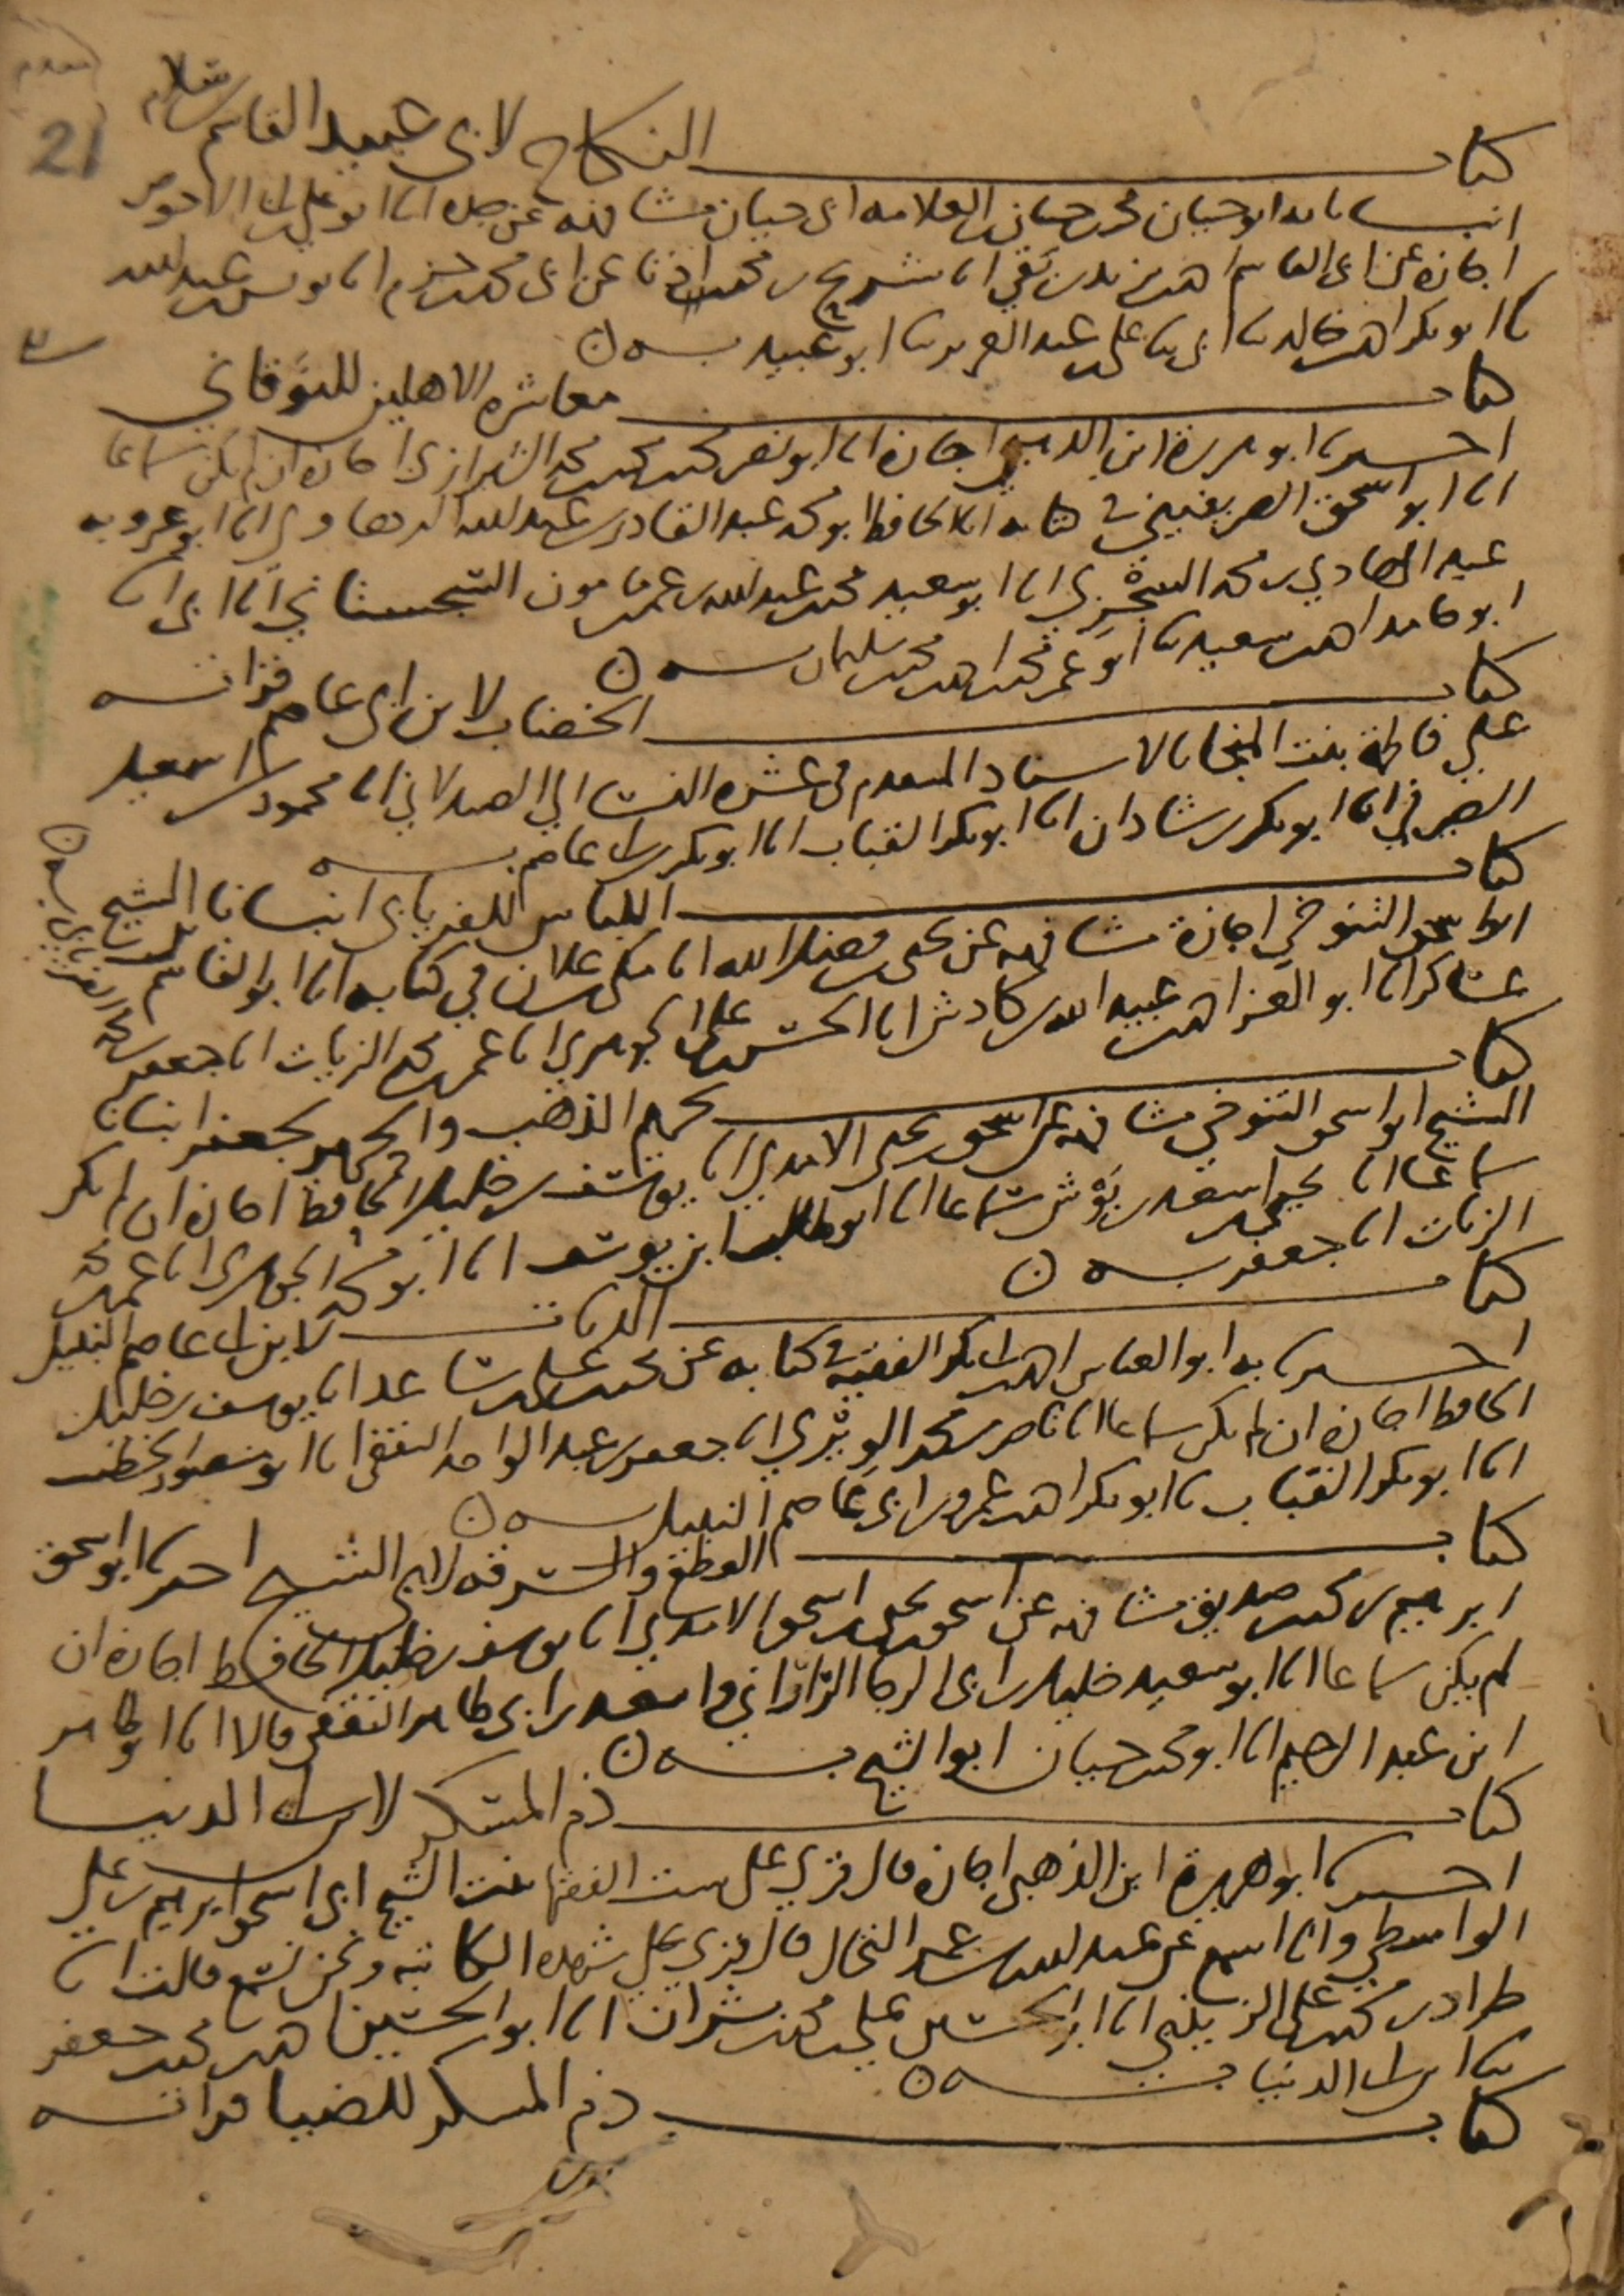 21
كتاب النكاح لابي عبيد القاسم بن سلام
انبانا به ابو حيان محمد بن حيان بن العلامه ابى حيان مشافهه عن جده انا ابو علي بن ابى الاحوص
اجازه عن ابى القاسم احمد بن يزيد بن بقي انا شريح بن محمد اذنا عن ابى محمد بن حزم انا يونس بن عبد الله
نا ابو بكر احمد بن خالد نا ابى نا على بن عبد العزيز نا ابو عبيد به ن
كتاب معاشره الاهلين للنوقاني
اخبرنا ابو هريرة ابن الذهبي اجازه انا ابو نصر محمد بن محمد بن محمد الشيرازي اجازه ان لم يكن سماعا
انا ابو اسحق الصريفيني في كتابه انا الحافظ ابو محمد عبد القادر بن عبد الله الرهاوي انا ابو عروبه
عبد الهادي بن محمد السجزي انا ابو سعيد محمد بن عبد الله بن عمر بن مامون السجستاني انا ابى انا
ابو حامد احمد بن سعيد نا ابو عمر محمد بن احمد بن محمد بن سليمان به ن
كتاب الخضاب لابن ابي عاصم قراته
علي فاطمة بنت المنجا بالاسناد المقدم فى عشرة النساء الي الصيدلاني انا محمود بن اسمعيل
الصيرفي انا ابو بكر بن شاذان انا ابو بكر القباب انا ابو بكر بن ابى عاصم به
كتاب اللباس للفريابى انبانا الشيخ
ابو اسحق التنوخي اجازة مشافهه عن يحيى بن فضل الله انا مكى بن علان في كتابه انا ابو القاسم بن
عساكر انا ابو العز احمد بن عبيد الله بن كادش انا الحسن بن على الجوهري انا عمر بن محمد الزيات انا جعفر بن محمد الفريابي به ن
كتاب تحريم الذهب والحرير لجعفر انبانا
الشيخ ابو اسحق التنوخي مشافهه عن اسحق بن يحيى الامدي انا يوسف بن خليل الحافظ اجازه ان لم يكن
سماعا انا يحيى بن اسعد بن بوش سماعا انا ابو طالب ابن يوسف انا ابو محمد الجوهرى انا عمر بن محمد
الزيات انا جعفر به ن
كتاب الديات لابن ابى عاصم النبيل
اخبرنا به ابو العباس احمد بن ابى بكر الفقيه في كتابه عن محمد بن على بن ساعد انا يوسف بن خليل
الحافظ اجازه ان لم يكن سماعا انا ناصر بن محمد الويرى انا جعفر بن عبد الواحد الثقفى انا ابو منصور الخطيب
انا ابو بكر القباب نا ابو بكر احمد بن عمرو بن ابى عاصم النبيل به ن
كتاب القطع والسرقه لابي الشيخ اخبرنا ابو اسحق
ابرهيم بن محمد بن صديق مشافهه عن اسحق بن يحيى بن اسحق الامدي انا يوسف بن خليل الحافظ اجازه ان
لم يكن سماعا انا ابو سعيد خليل بن ابى الرجا الراراني واسعد بن ابى طاهر الثقفى قالا انا ابو طاهر
ابن عبد الرحيم انا ابو محمد بن حيان ابو الشيخ به ن
كتاب ذم المسكر لابن ابى الدنيا
اخبرنا ابو هريرة ابن الذهبى اجازه قال قري على ست الفقها بنت الشيخ ابى اسحق ابرهيم بن علي
الواسطي وانا اسمع عن عبد الله بن عمر النخال قال قري على شهده الكاتبه ونحن نسمع قالت انا
طراد بن محمد بن على الزينبي انا ابو الحسين على بن محمد بن بشران انا ابو الحسين احمد بن محمد بن جعفر
نا ابن ابى الدنيا به ن
كتاب ذم المسكر للضيا قراته